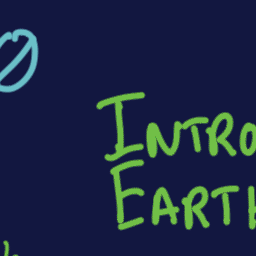 INTRO
EARTH